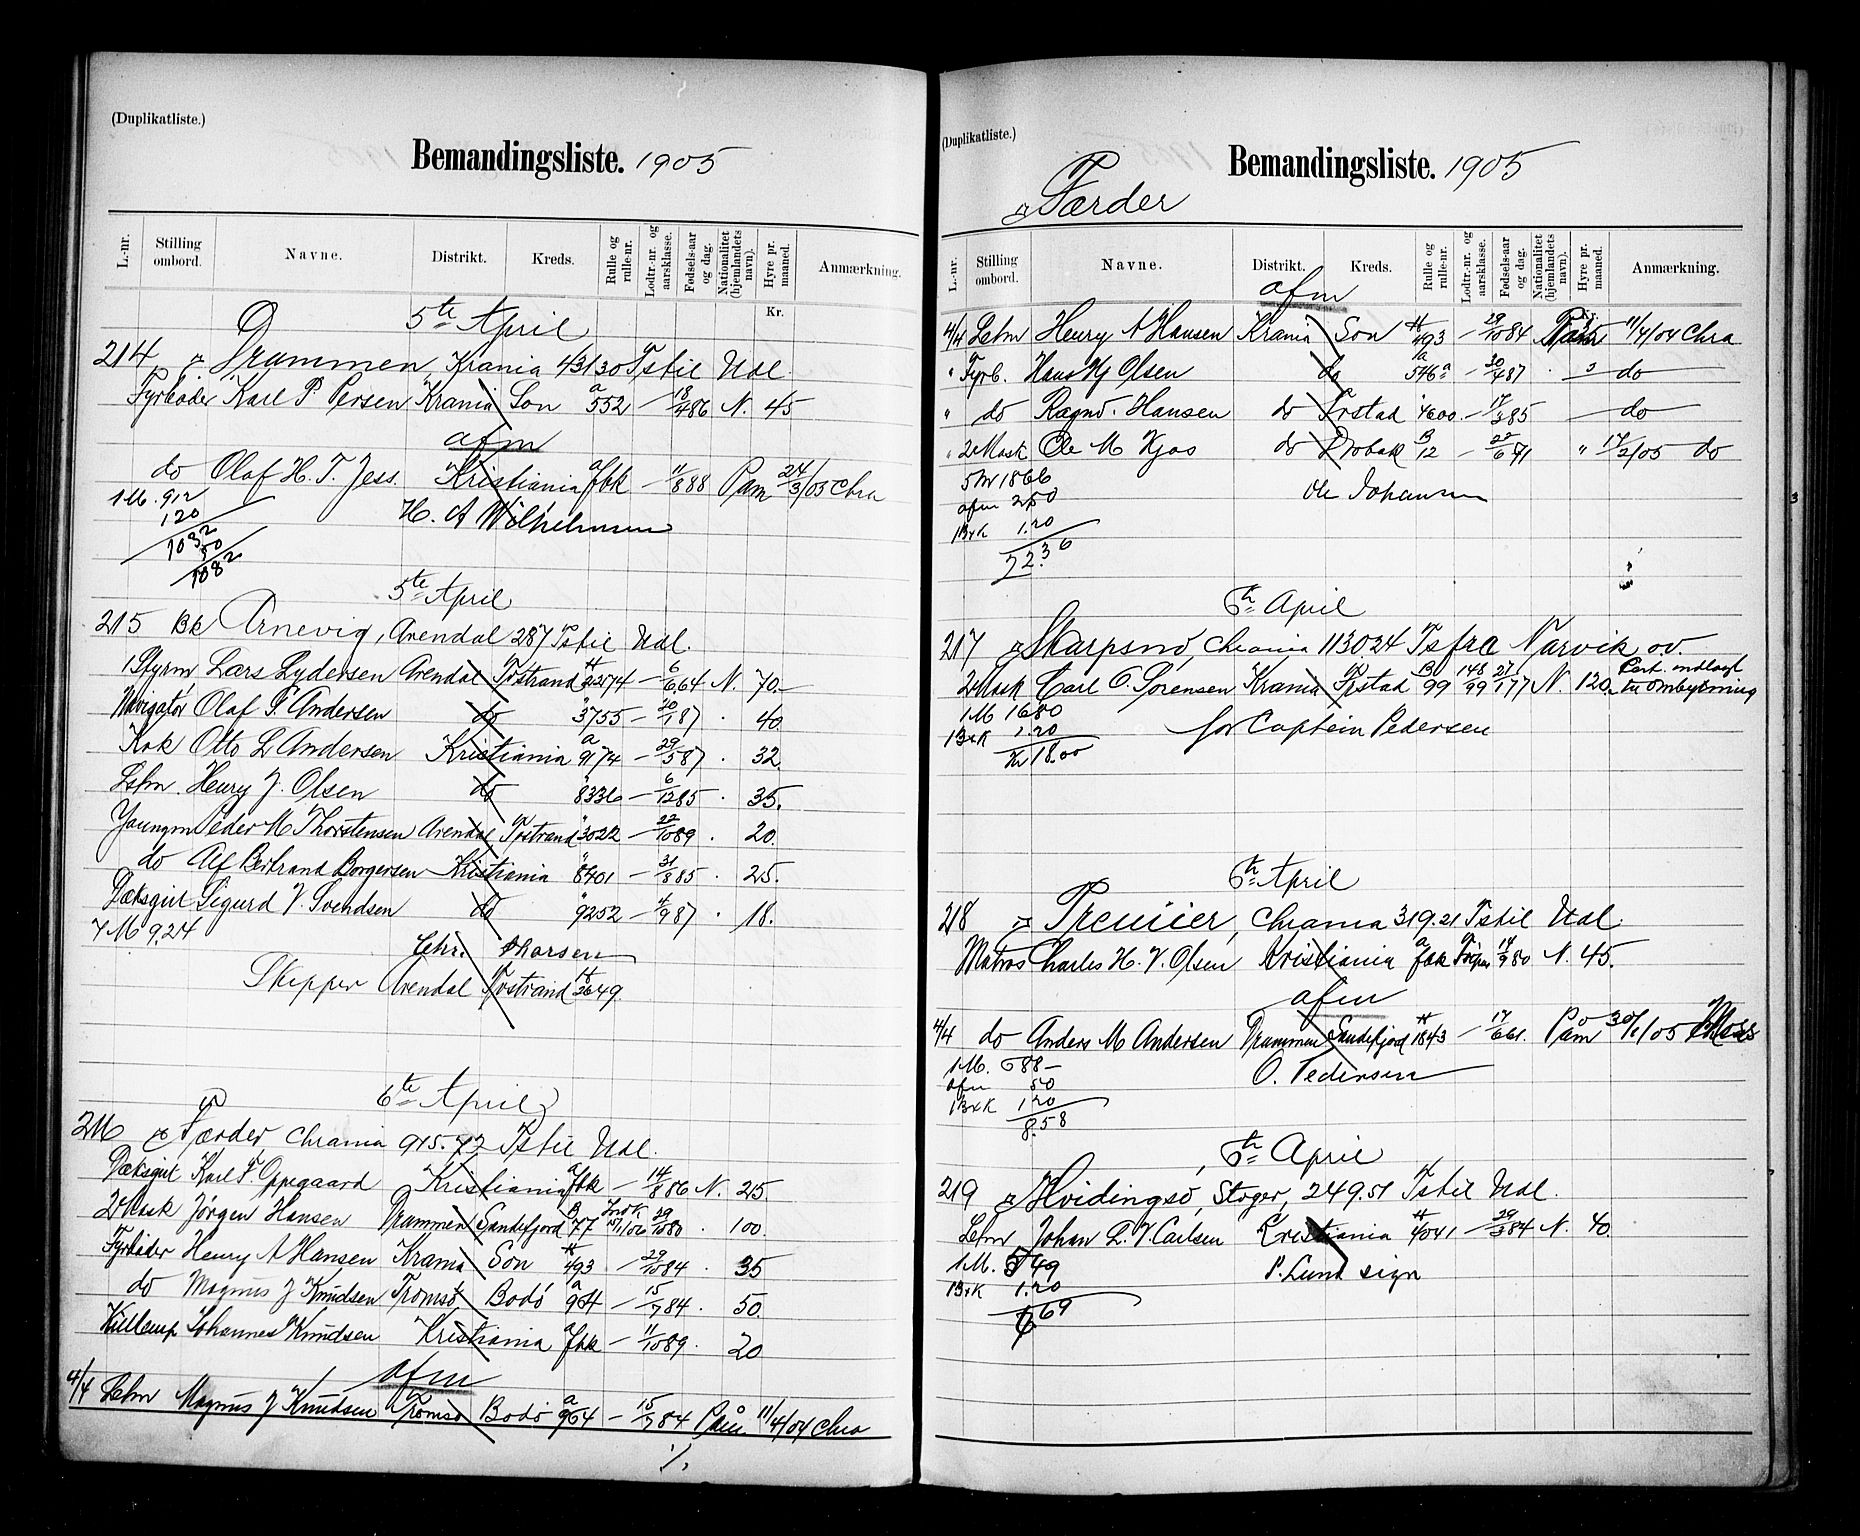 (Duplikatliste.)
Bemandingsliste. 1905
L.-nr. Stilling ombord. Navne. Distrikt. Kreds. Rulle og rulle-nr. Lodtr.-nr. og aarsklasse. Fødsels-aar og dag. Nationalitet (hjemlandets navn). Hyre pr. maaned. Anmærkning.
Kr.
5te April
214 Drammen, Krania 431,30 Ts til Udl.
Fyrbøder Karl P. Persen Krania Son a 552 — 18/4 86 N. 45
afm
do Olaf H. T. Jess. Kristiania afbk — 11/8 88 Påm 24/3/05 Chra
1 M. 912
120
1032
50
1082
H. A Wilhelmsen
5te April
215 Bk Arnevig, Arendal 287 Ts til Udl.
1 Styrm. Lars Lydersen Arendal Tostrand H 2274 — 6/6 64 N. 70.—
Navigatør Olaf F. Andersen do " 3755 — 20/1 87 · 40.
Kok Otto L Andersen Kristiania a 9174 — 29/5 87 · 32.
Letm. Henry J. Olsen do " 8336 — 6/12 85 · 35.
Youngm Peder M Thorstensen Arendal Tostrand " 3022 — 22/10 89 · 20.
do Alf Bertrand Borgersen Kristiania " 8401 — 31/8 85 · 25.
Dæksgut Sigurd V. Svendsen do " 9252 — 4/9 87 · 18.
7 M 9.24
Chr. Thorsen
Skipper Arendal Tostrand H 2649.
6te April
216 Færder, Chrania 915.72 Ts til Udl.
Dæksgut Karl F. Oppegaard Kristiania afbk — 14/8 86 N. 25
2 Mask Jørgen Hansen Drammen Sandefjord B 77 29/10 80 · 100.
Fyrbøder Henry A Hansen Krania Son H 493 — 29/10 84 · 35
do Magnus J Knudsen Tromsø Bodø a 964 — 15/7 84 · 50.
Kullemp Johannes Knudsen Kristiania afbk — 11/10 89 · 20
afm
4/4 Letm Magnus J Knudsen Tromsø Bodø a 964 — 15/7 84 Påm 11/4/04 Chra
·/.
(Duplikatliste.)
Bemandingsliste. 1905
Færder
L.-nr. Stilling ombord. Navne. Distrikt. Kreds. Rulle og rulle-nr. Lodtr.-nr. og aarsklasse. Fødsels-aar og dag. Nationalitet (hjemlandets navn). Hyre pr. maaned. Anmærkning.
afm
4/4 Letm Henry A Hansen Krania Son H 493 — 29/10 84 Påm 11/4/04 Chra
" Fyrb. Hans Hj Olsen do 546a — 30/4 87 · " do
" do Ragnv. Hansen do Ørstad " 4600 — 17/3 85 do
" 2 Mask Ole M Kjos do Drøbak B 12 — 22/6 71 " 17/2/05 do
5 M 1866
afm 250
1 BxK 1.20
22.36
Ole Johansen
6te April
217 Skarpsno, Chrania 1130 24 Ts fra Narvik ov.
2 Mask Carl O. Sørensen Krania Ørstad B 99 148/99 27/1 77 N. 120. Part. indlagt til ombytning
1 M 1680
1 BxK 1.20
Kr 18.00
for Captein Pedersen
6te April
218 Premier, Chrania 319.21 Ts til Udl.
Matros Charles H. V. Olsen Kristiania a fbk 14/9 80 N. 45.
afm
4/4 do Anders M Andersen Drammen Sandefjord H 1843 — 17/6 61. Påm 30/1/05 Moss
1 M. 688 —
afm 50
1 BxK 1.20
8.58
O. Pedersen
6te April
219 Hvidingsø, Stvger, 249.51 Ts til Udl.
Letm Johan L. V. Carlsen Kristiania H 4041 — 29/3 84 N. 40.
1 M. 549
1 BxK 1.20
6 69
P. Lund sign